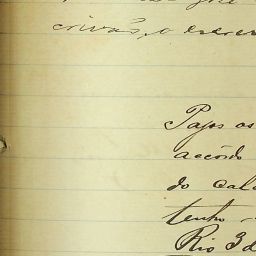 crivão, o escrev
Pagos os
accórdo
do cal
tenho
Rio 3 d